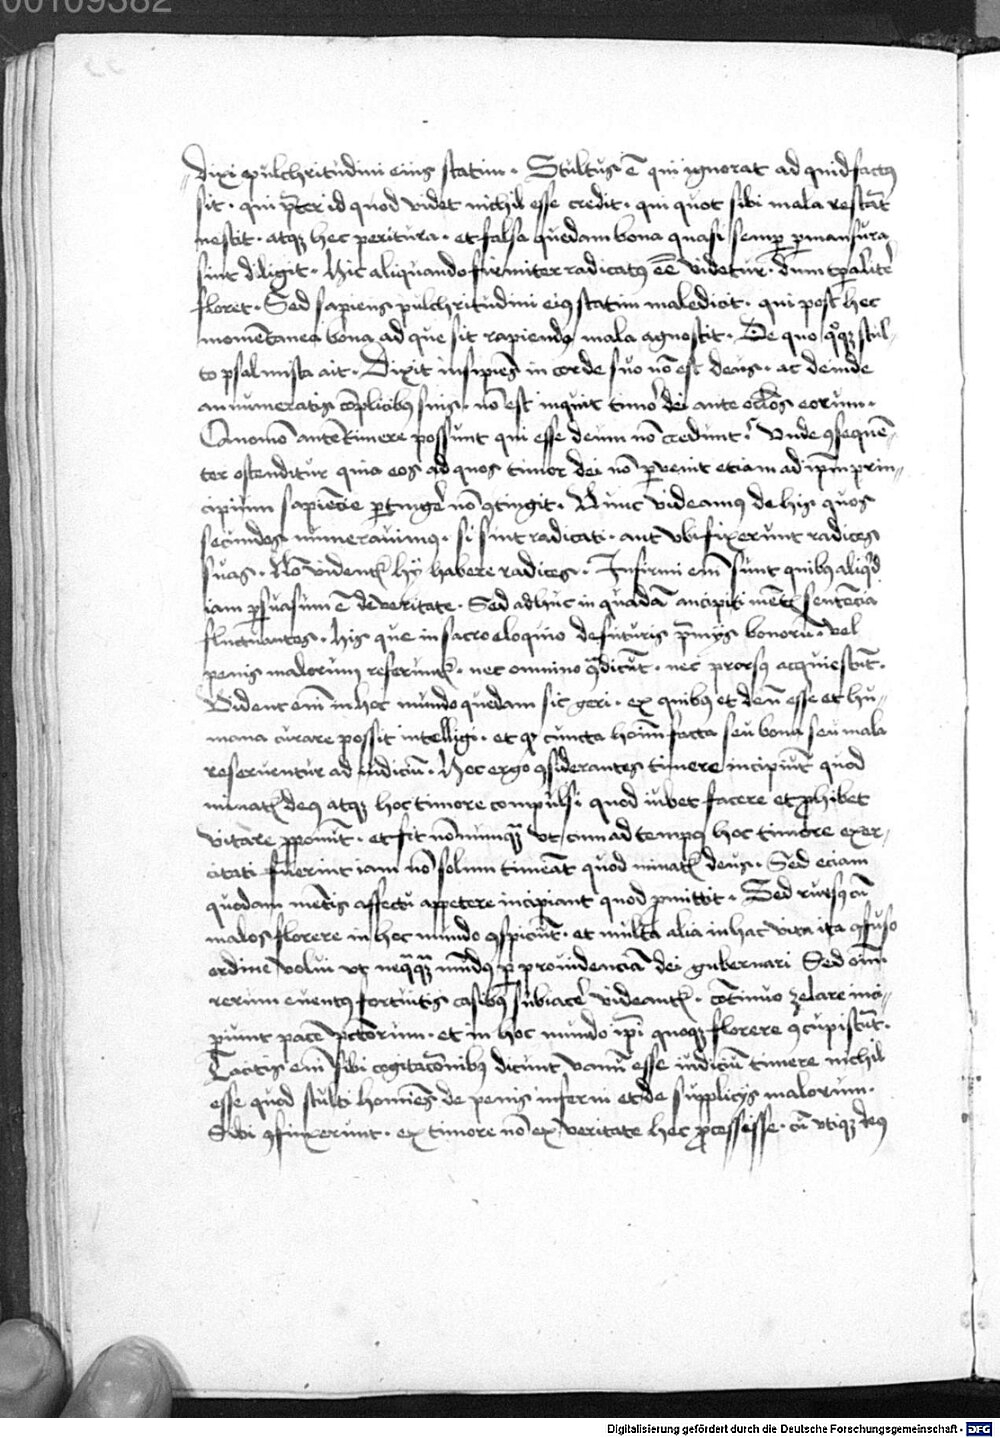 00109382
dixi pulchritudini eius statim · Stultus ē qui ignorat ad quid factꝰ
sit · qui p̄ter id quod videt nichil esse credit · qui quot sibi mala restāt
nescit · atqꝫ hec peritura · et falsa quedam bona quasi semꝑ ꝑmansura
sint diligit · Hic aliquando firmiter radicatꝰ eē videtur · dum tꝑalitẽ
floret · Sed sapiens pulchritudini eiꝰ statim maledicit · qui post hec
momētanea bona ad que sit rapiendꝰ mala agnoscit · De quo qͦqꝫ stul-
to psalmista ait · Dixit insipiēs in corde suo nō est deus · ac deinde
annumeratis cōplicibꝰ suis · nō est inquit timor dei ante oc̄los eorum ·
Quomō autē timere possunt qui esse deum nō credunt · Vnde ꝯsequēn-
ter ostenditur quia eos ad quos timor dei nō ꝑvenit etiam ad ip̄m prin-
cipium sapiēcie ꝑtingẽ nō ꝯtingit · Nunc videamꝰ de his quos
secundos numerauimꝰ · si sint radicati · aut vbi fixerunt radices
suas · Nō videntꝛ hÿ habere radices · Infirmi em̄ sunt quibꝰ aliqͥd
iam ꝑsuasum ē de veritate · Sed adhuc in quadā ancipiti mētis sentēcia
fluctuantes · his que in sacro eloquio de futuris p̄mijs bonorū · vel
penis malorum referuntꝛ · nec omnino ꝯ̄dicūt · nec prorsꝰ acquiescūt ·
Vident em̄ in hoc mundo quedam sic geri · ex quibꝰ et deū esse et hu-
mana curare possit intelligi · et qꝫ cuncta hoīm facta seu bona seu mala
reseruentur ad iudiciū · Hec ergo ꝯsiderantes timere incipiūt quod
minatꝛ deꝰ atqꝫ hoc timore compulsi quod iubet facere et ꝓhibet
vitare ꝓponūt · et fit nō nunqꝫ vt cum ad tempꝰ hoc timore exer-
citati fuerint iam nō solum timeāt quod minatꝛ deus · Sed eciam
quodam mētis affectu appetere incipiant quod ꝓmittit · Sed rursꝰ cū
malos florere in hoc mundo ꝯspiciūt · et multa alia in hac vita ita ꝯfuso
ordine volui vt neq̄qꝫ mūdꝰ ꝑ prouidenciā dei gubernari Sed oīm
rerum euentꝰ fortuitis casibꝰ subiacẽ videantꝛ · cōtinuo zelare inci-
piunt pacē pctōrum · et in hoc mundo ip̄i quoqꝫ florere ꝯcupiscūt ·
Tacitis em̄ sibi cogitacōnibꝰ dicunt vanū esse iudiciū timere nichil
esse quod stulti homīes de penis inferni et de supplicijs malorum ·
Sibi ꝯfinxerunt · ex timore nō ex veritate hec ꝓcessisse · cū vtiqꝫ deꝰ
Digitalisierung gefördert durch die Deutsche Forschungsgemeinschaft - DFG